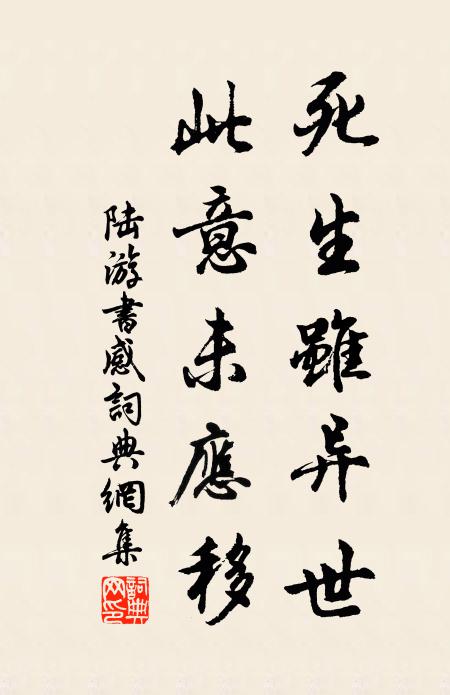 死生雖异世
此意未應移
陆游書感詞典網集
詞典網印